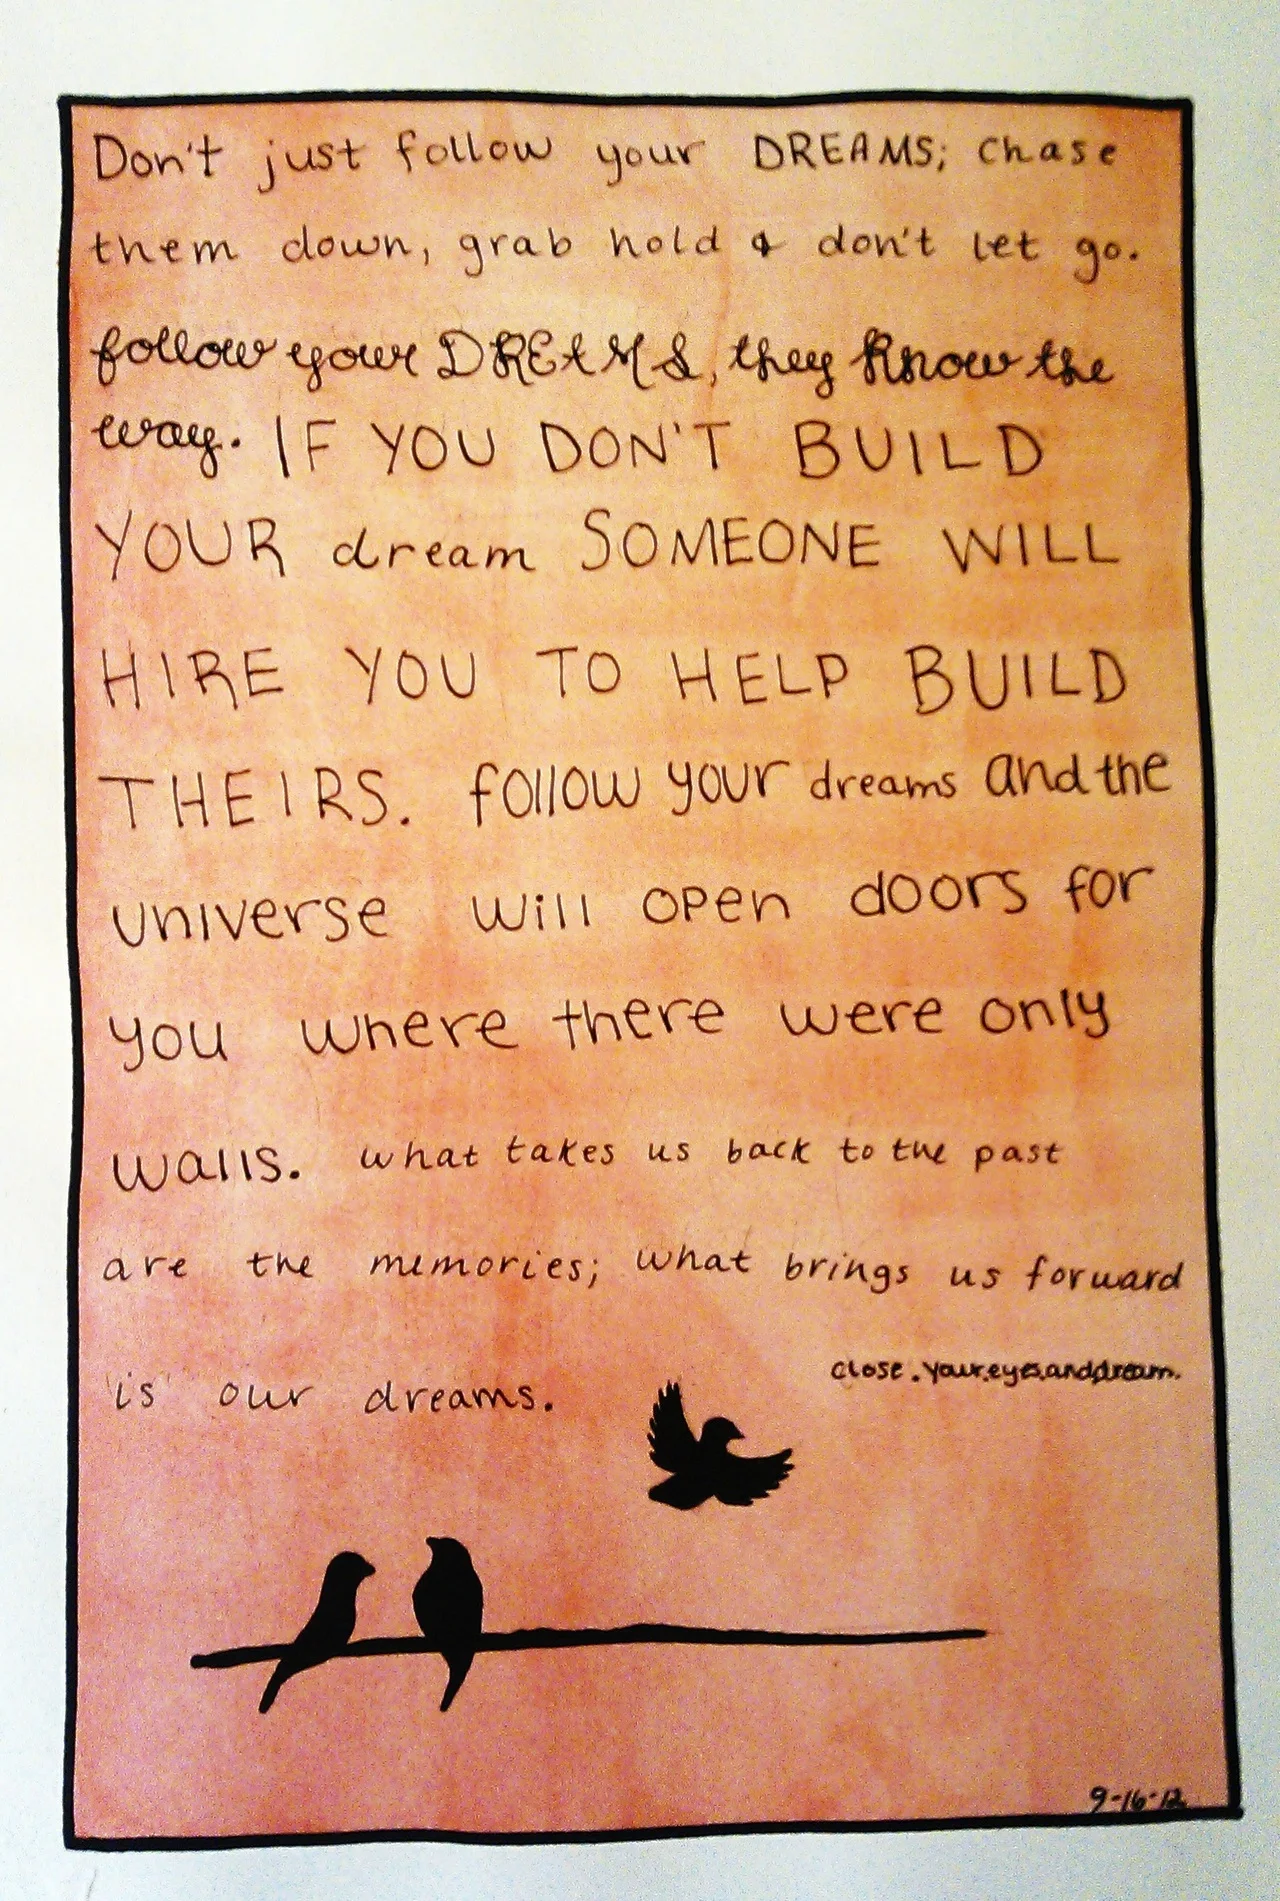 Don't just follow your DREAMS; chase
them down, grab hold & don't let go.
follow your DREAMS, they know the
way. IF YOU DON'T BUILD
YOUR dream SOMEONE WILL
HIRE YOU TO HELP BUILD
THEIRS. follow your dreams and the
universe will open doors for
you where there were only
walls. what takes us back to the past
are the memories; what brings us forward
is our dreams.
close.your.eyes.and.dream.
9-16-12